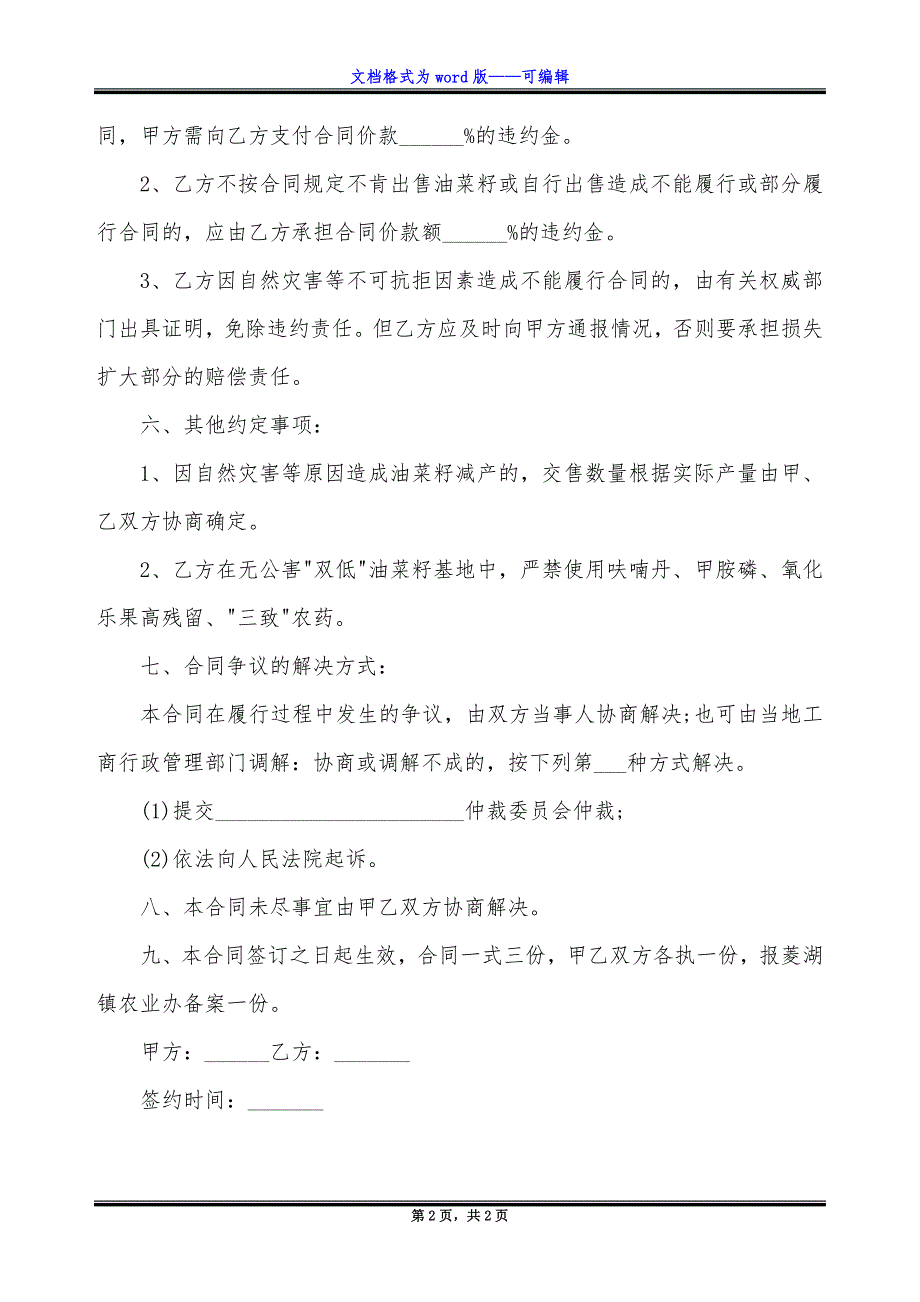 文档格式为 word 版——可编辑
同，甲方需向乙方支付合同价款______%的违约金。
2、乙方不按合同规定不肯出售油菜籽或自行出售造成不能履行或部分履
行合同的，应由乙方承担合同价款额______%的违约金。
3、乙方因自然灾害等不可抗拒因素造成不能履行合同的，由有关权威部
门出具证明，免除违约责任。但乙方应及时向甲方通报情况，否则要承担损失
扩大部分的赔偿责任。
六、其他约定事项：
1、因自然灾害等原因造成油菜籽减产的，交售数量根据实际产量由甲、
乙双方协商确定。
2、乙方在无公害"双低"油菜籽基地中，严禁使用呋喃丹、甲胺磷、氧化
乐果高残留、"三致"农药。
七、合同争议的解决方式：
本合同在履行过程中发生的争议，由双方当事人协商解决;也可由当地工
商行政管理部门调解：协商或调解不成的，按下列第___种方式解决。
(1)提交_______________________仲裁委员会仲裁;
(2)依法向人民法院起诉。
八、本合同未尽事宜由甲乙双方协商解决。
九、本合同签订之日起生效，合同一式三份，甲乙双方各执一份，报菱湖
镇农业办备案一份。
甲方：______乙方：_______
签约时间：_______
第 2 页，共 2 页